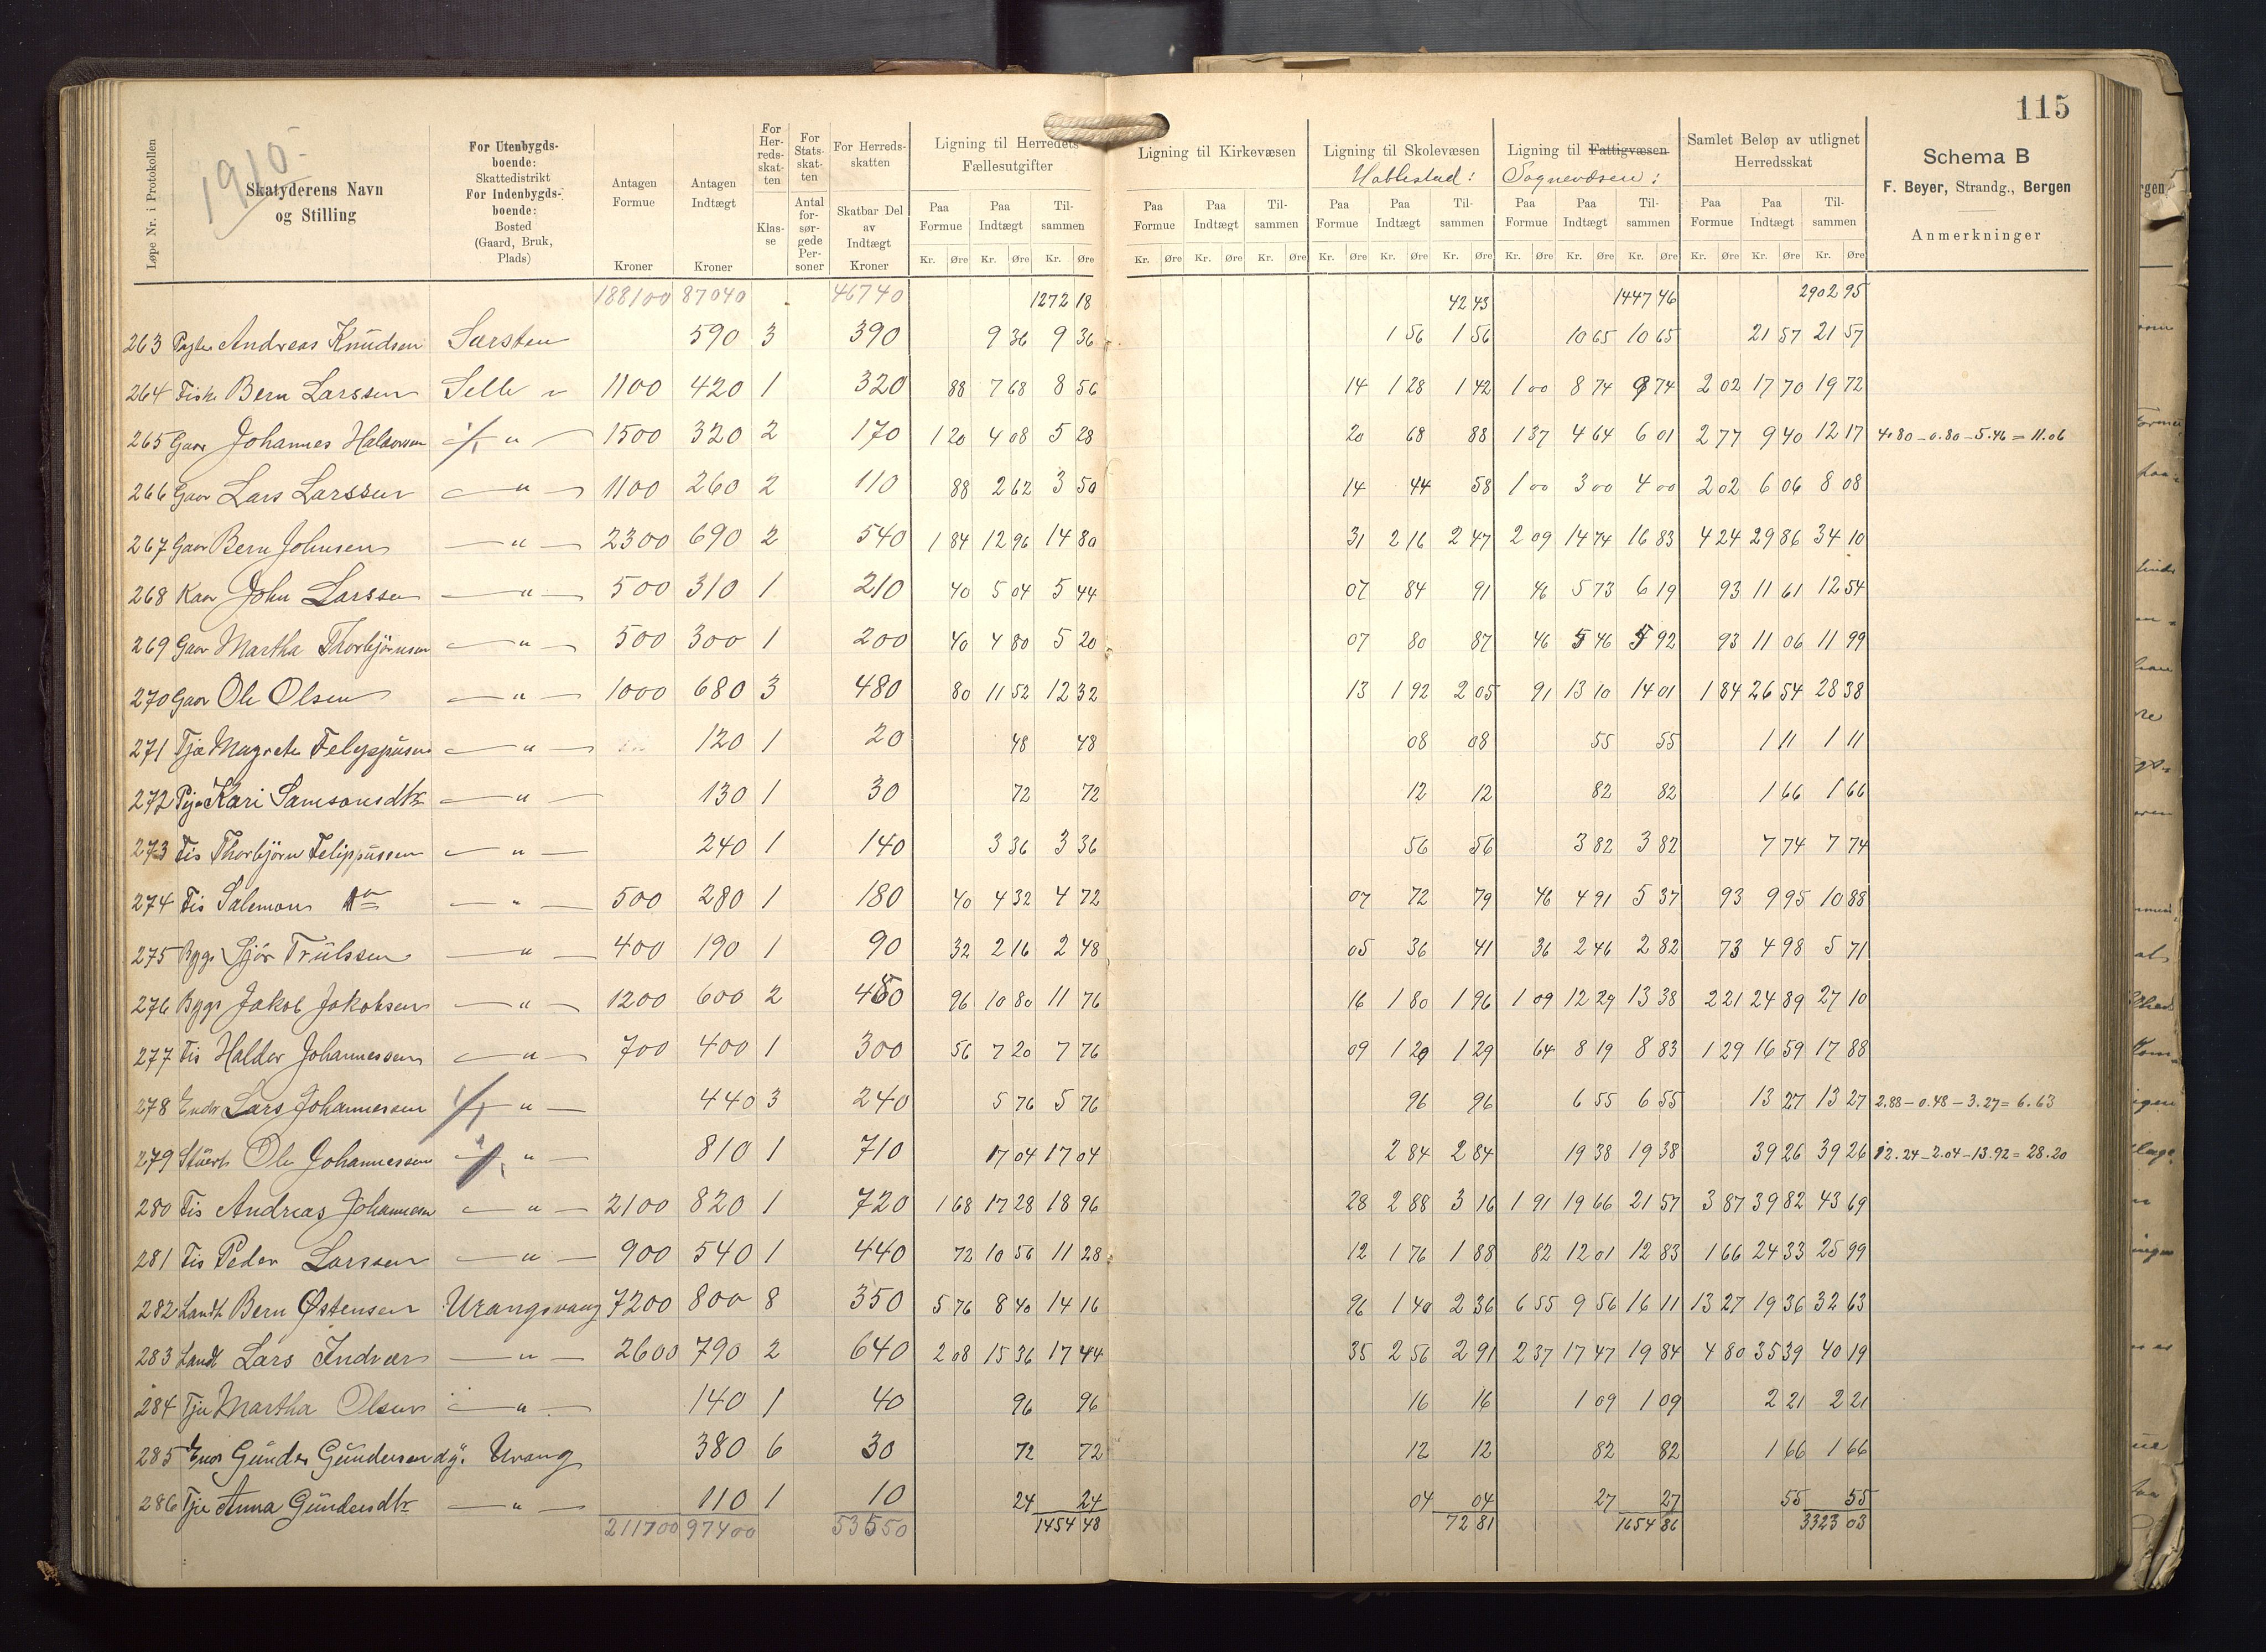 115
1910
Løpe Nr. i Protokollen
Skatyderens Navn og Stilling
For Utenbygds-boende: Skattedistrikt For Indenbygds-boende: Bosted (Gaard, Bruk, Plads)
Antagen Formue Kroner
Antagen Indtægt Kroner
For Her-reds-skat-ten Klas-se
For Stats-skat-ten Antal for-sør-gede Per-soner
For Herreds-skatten Skatbar Del av Indtægt Kroner
Ligning til Herredets Fællesutgifter
Ligning til Kirkevæsen
Ligning til Skolevæsen
Ligning til Fattigvæsen
Sognevæsen:
Samlet Beløp av utlignet Herredsskat
Schema B
F. Beyer, Strandg., Bergen
Anmerkninger
Paa Formue Paa Indtægt Til-sammen Paa Formue Paa Indtægt Til-sammen Paa Formue Paa Indtægt Til-sammen Paa Formue Paa Indtægt Til-sammen Paa Formue Paa Indtægt Til-sammen
Kr. Øre Kr. Øre Kr. Øre Kr. Øre Kr. Øre Kr. Øre Kr. Øre Kr. Øre Kr. Øre Kr. Øre Kr. Øre Kr. Øre Kr. Øre Kr. Øre Kr. Øre
188100 87040 46740 1272 18 42 43 1447 46 2902 95
263 Andreas Knudsen Sørsten 590 3 390 9 36 9 36 1 56 1 56 10 65 10 65 21 57 21 57
264 Fisk Bern Larssen Selle " 1100 420 1 320 88 7 68 8 56 14 1 28 1 42 1 00 8 74 9 74 2 02 17 70 19 72
265 Gaar Johannes Haldorsen " 1500 320 2 170 1 20 4 08 5 28 20 68 88 1 37 4 64 6 01 2 77 9 40 12 17 4.80 - 0.80 - 5.46 = 11.06
266 Gaar Lars Larssen " 1100 260 2 110 88 2 62 3 50 14 44 58 1 00 3 00 4 00 2 02 6 06 8 08
267 Gaar Bern Johnsen " 2300 690 2 540 1 84 12 96 14 80 31 2 16 2 47 2 09 14 74 16 83 4 24 29 86 34 10
268 Kaar John Larssen " 500 310 1 210 40 5 04 5 44 07 84 91 46 5 73 6 19 93 11 61 12 54
269 Gaar Martha Thorbjörnsen " 500 300 1 200 40 4 80 5 20 07 80 87 46 5 46 5 92 93 11 06 11 99
270 Gaar Ole Olsen " 1000 680 3 480 80 11 52 12 32 13 1 92 2 05 91 13 10 14 01 1 84 26 54 28 38
271 Tje Magrete Felyppusen " 120 1 20 48 48 08 08 55 55 1 11 1 11
272 Kari Samsonsdtr " 130 1 30 72 72 12 12 82 82 1 66 1 66
273 Fis Thorbjörn Felippussen " 240 1 140 3 36 3 36 56 56 3 82 3 82 7 74 7 74
274 Fis Salemon do " 500 280 1 180 40 4 32 4 72 07 72 79 46 4 91 5 37 93 9 95 10 88
275 Bygs Sjör Trülssen " 400 190 1 90 32 2 16 2 48 05 36 41 36 2 46 2 82 73 4 98 5 71
276 Bygs Jakob Jakobsen " 1200 600 2 450 96 10 80 11 76 16 1 80 1 96 1 09 12 29 13 38 2 21 24 89 27 10
277 Fis Haldor Johannessen " 700 400 1 300 56 7 20 7 76 09 1 20 1 29 64 8 19 8 83 1 29 16 59 17 88
278 Lars Johannessen " 440 3 240 5 76 5 76 96 96 6 55 6 55 13 27 13 27 2.88 - 0.48 - 3.27 = 6.63
279 Stuert Ole Johannessen " 810 1 710 17 04 17 04 2 84 2 84 19 38 19 38 39 26 39 26 12.24 - 2.04 - 13.92 = 28.20
280 Fis Andreas Johannesen " 2100 820 1 720 1 68 17 28 18 96 28 2 88 3 16 1 91 19 66 21 57 3 87 39 82 43 69
281 Fis Peder Larssen " 900 540 1 440 72 10 56 11 28 12 1 76 1 88 82 12 01 12 83 1 66 24 33 25 99
282 Landh Bern Østensen Urangsvaag 7200 800 8 350 5 76 8 40 14 16 96 1 40 2 36 6 55 9 56 16 11 13 27 19 36 32 63
283 Landh Lars Indvær " 2600 790 2 640 2 08 15 36 17 44 35 2 56 2 91 2 37 17 47 19 84 4 80 35 39 40 19
284 Tje Martha Olsen " 140 1 40 96 96 16 16 1 09 1 09 2 21 2 21
285 Gunder Gundersen dy. Urang 380 6 30 72 72 12 12 82 82 1 66 1 66
286 Tje Anna Gundersdtr " 110 1 10 24 24 04 04 27 27 55 55
211700 97400 53550 1454 48 72 81 1654 86 3323 03